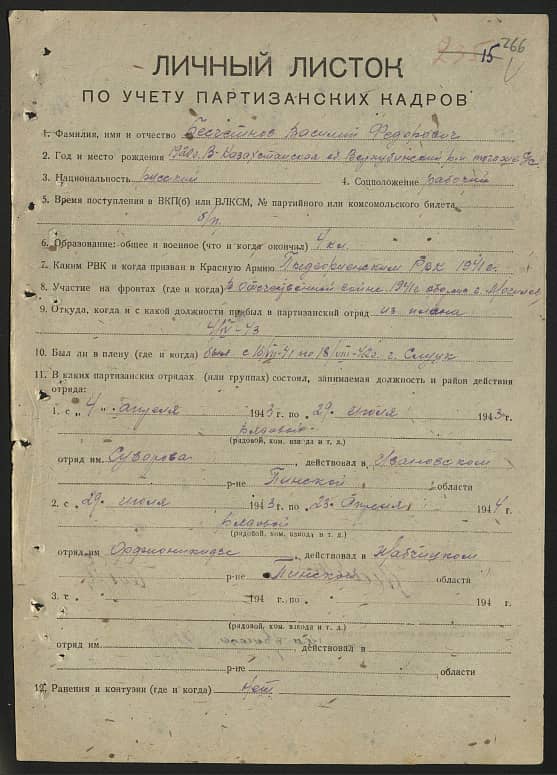 266
15
ЛИЧНЫЙ ЛИСТОК
ПО УЧЕТУ ПАРТИЗАНСКИХ КАДРОВ
1. Фамилия, имя и отчество Бесчетнов Василий Федорович
2. Год и место рождения В-Казахстанская об.
3. Национальность русский 4. Соцположение рабочий
5. Время поступления в ВКП(б) или ВЛКСМ, № партийного или комсомольского билета
б/п.
6. Образование: общее и военное (что и когда окончил) 4 кл.
7. Каким РВК и когда призван в Красную Армию РВК 1941 г.
8. Участие на фронтах (где и когда) В Отечественной войне 1941 г. г. Могилев
9. Откуда, когда и с какой должности прибыл в партизанский отряд из плена
4/IV-43
10. Был ли в плену (где и когда) был с 18/VIII-42 г. Слуцк
11. В каких партизанских отрядах (или группах) состоял, занимаемая должность и район действия
отряда:
1. с „4„ апреля 1943 г. по „29„ июля 1943 г.
рядовой
(рядовой, ком. взвода и т. д.)
отряд им. Суворова, действовал в Ивановском
р-не Пинской области
2. с „29„ июля 1943 г. по „23„ апреля 1944 г.
рядовой
(рядовой, ком. взвода и т. д.)
отряд им. Орджоникидзе, действовал в Жабчицком
р-не Пинской области
3. с 194 г. по 194 г.
(рядовой, ком. взвода и т. д.)
отряд им. , действовал в
р-не области
12. Ранения и контузии (где и когда) нет